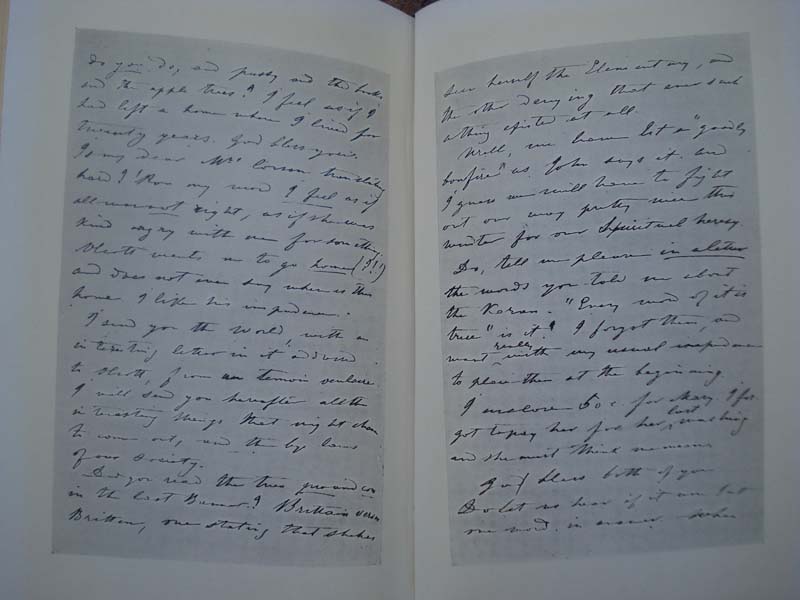 do you do, and pussy and the books
and the apple trees? I feel as if I
had left a home where I lived for
twenty years. God bless you.
Is my dear Mrs Corson
hard? For my mind I feel as if
all was not right, as if she was
kind angry with me for something
Olcott wants me to go home (?!)
and does not even say where is this
home. I like his impudence.
I send you the World, with an
interesting letter in it
to Olcott, from un temoin
I will send you hereafter all the
interesting things that might chance
to come out, and the by laws
of our Society.
Did you read the two pro and con
in the last Banner? Brittain versus
Britten, one stating that she has
seen herself the Elementary, and
the other denying that ever such
a thing existed at all.
Well, we have lit a "goodly
bonfire" as John says it and
I guess we will have to fight
out our way pretty near this
winter for our Spiritual heresy.
Do, tell me please in a letter
the words you told me about
the Koran. "Every word of it is
true" is it? I forgot them, and
want really with my usual impudence
to place them at the beginning.
I enclose 50 c. for Mary I for
got to pay her for her last washing
and she must think me mean
God bless both of you
Do let us hear if it
one word. in answer